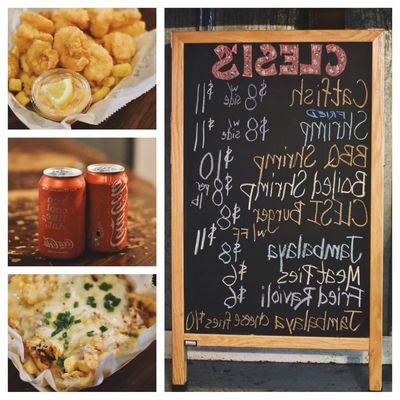 CLESI'S
Catfish $8 w/ side $11
FRIED
Shrimp $8 w/ side $11
BBQ Shrimp $10
Boiled Shrimp $8 per lb
CLESI Burger $8
w/ FF $11
Jambalaya $8
Meat Pies $6
Fried Ravioli $6
Jambalaya cheese fries $10
Coca-Cola
Coca-Cola